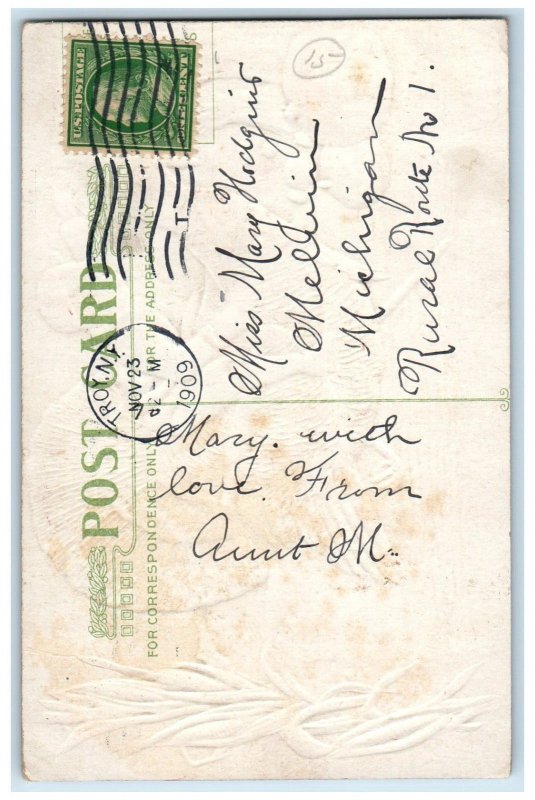 U.S. POSTAGE
ONE CENT
TROY, N.Y.
NOV 23
1909
1
POST CARD
FOR THE ADDRESS ONLY
FOR CORRESPONDENCE ONLY
15
Miss Mary Hodgins
Melvin
Michigan
Rural Route No 1.
Mary. with
love. From
Aunt M.